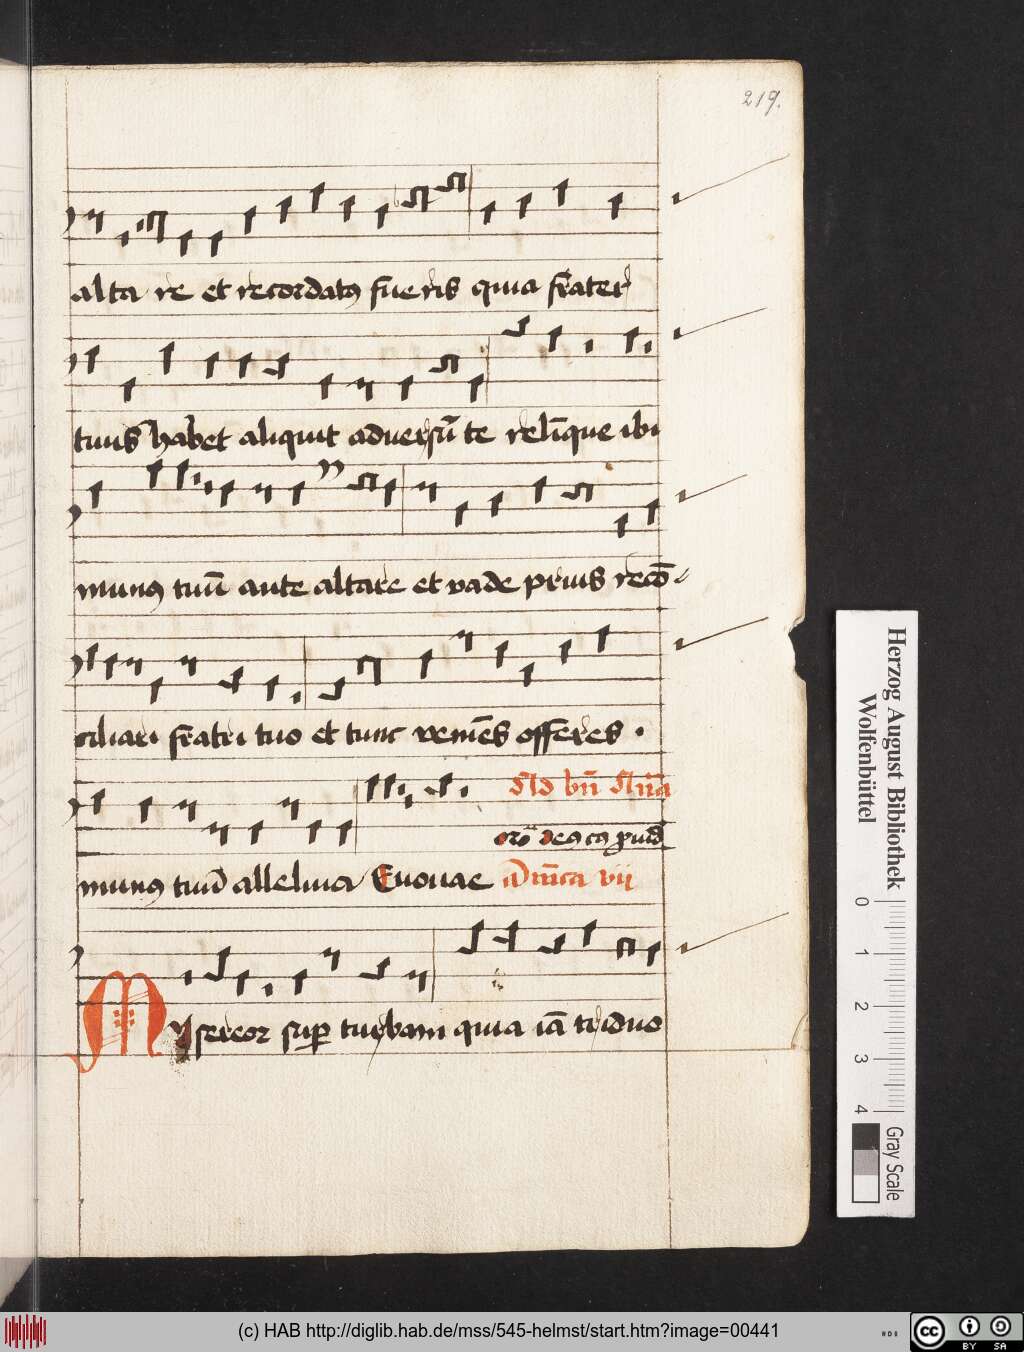 219.
alta re et recordatꝯ fu̅eris quia fr̅ater
tuus habet aliquit aduersu̅ te reli̅que ibi
munꝯ tuu̅ ante altare et vade prius reco̅
ciliari fr̅atri tuo et tunc venie̅s offeres .
munꝯ tuu̅ alleluia Euouae
vii
Misereor sup̲ turbam quia ia̅ triduo
Herzog August Bibliothek
Wolfenbüttel
0 1 2 3 4
Gray Scale
(c) HAB http://diglib.hab.de/mss/545-helmst/start.htm?image=00441
cc BY SA